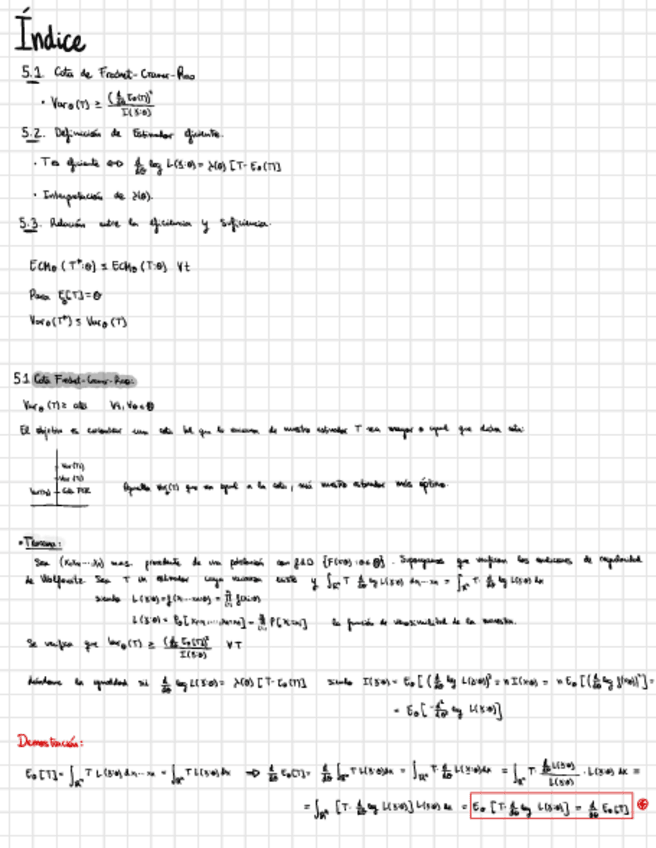 Índice
5.1. Cota de Frechet-Cramer-Rao
· Varθ(T) ≥ (d/dθ Eθ(T))² / I(X;θ)
5.2. Definición de Estimador eficiente.
· T es eficiente ⇔ d/dθ log L(X;θ) = λ(θ) [T - Eθ(T)]
· Interpretación de λ(θ).
5.3. Relación entre la eficiencia y Suficiencia.
ECMθ(T*;θ) ≤ ECMθ(T;θ) ∀t
Para E[T]=θ
Varθ(T*) ≤ Varθ(T)
5.1 Cota Frechet-Cramer-Rao:
Varθ(T) ≥ cota
El objetivo es encontrar una cota tal que la varianza de nuestro estimador T sea mayor o igual que dicha cota.
Var(T1)
Var(T2)
Cota FCR
Aquella Varθ(T) que sea igual a la cota, será nuestro estimador más óptimo.
• Teorema:
Sea (X1,X2,...,Xn) m.a.s. procedente de una población con f.d.D {F(x;θ):θ∈Θ}. Supongamos que verifican las condiciones de regularidad
de Wolfowitz. Sea T un estimador cuya varianza existe y
siendo
la función de verosimilitud de la muestra.
Se verifica que Varθ(T) ≥ (d/dθ Eθ[T])² / I(X;θ) ∀T
dándose la igualdad si d/dθ log L(X;θ) = λ(θ) [T - Eθ(T)] siendo I(X;θ) = Eθ[(d/dθ log L(X;θ))²] = n I(X;θ) = n Eθ[(d/dθ log f(X;θ))²] =
= Eθ[-d²/dθ² log L(X;θ)]
Demostración:
Eθ[T] = ∫ T L(X;θ) dx1...xn = ∫ T L(X;θ) dx ⇒ d/dθ Eθ[T] = d/dθ ∫ T L(X;θ) dx = ∫ T · d/dθ L(X;θ) dx = ∫ T · (d/dθ L(X;θ)) / L(X;θ) · L(X;θ) dx =
= ∫ [T · d/dθ log L(X;θ)] L(X;θ) dx = Eθ[T · d/dθ log L(X;θ)] = d/dθ Eθ[T]